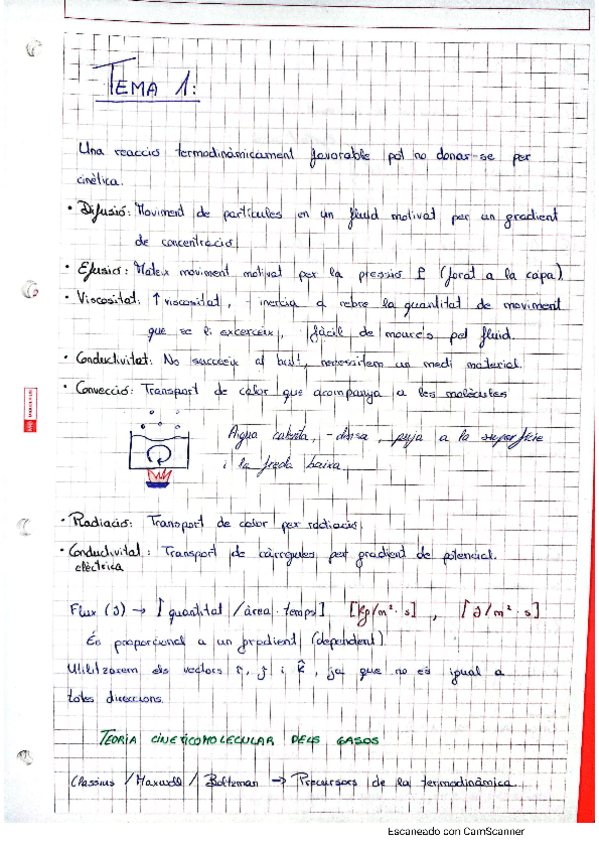 TEMA 1:
Una reacció termodinàmicament favorable pot no donar-se per
cinètica.
• Difusió: Moviment de partícules en un fluid motivat per un gradient
de concentració
• Efusió: Mateix moviment motivat per la pressió P (forat a la capa).
• Viscositat: ↑ viscositat, - inèrcia a rebre la quantitat de moviment
que se li excerceix, fàcil de moure's pel fluid.
• Conductivitat: No succeeix al buit, necessitem un medi material.
• Convecció: Transport de calor que acompanya a les molècules
Aigua calenta, - densa, puja a la superfície
i la freda baixa
• Radiació: Transport de calor per radiació.
• Conductivitat: Transport de càrregues per gradient de potencial.
elèctrica
Flux (J) → [quantitat / àrea · temps] [Kg/m² · s] , [J/m² · s]
És proporcional a un gradient (dependent)
Utilitzarem els vectors î, ĵ i k̂, ja que no és igual a
totes direccions.
TEORIA CINETICOMOLECULAR DELS GASOS
Classius / Maxwell / Boltzman → Precursors de la termodinàmica.
Escaneado con CamScanner